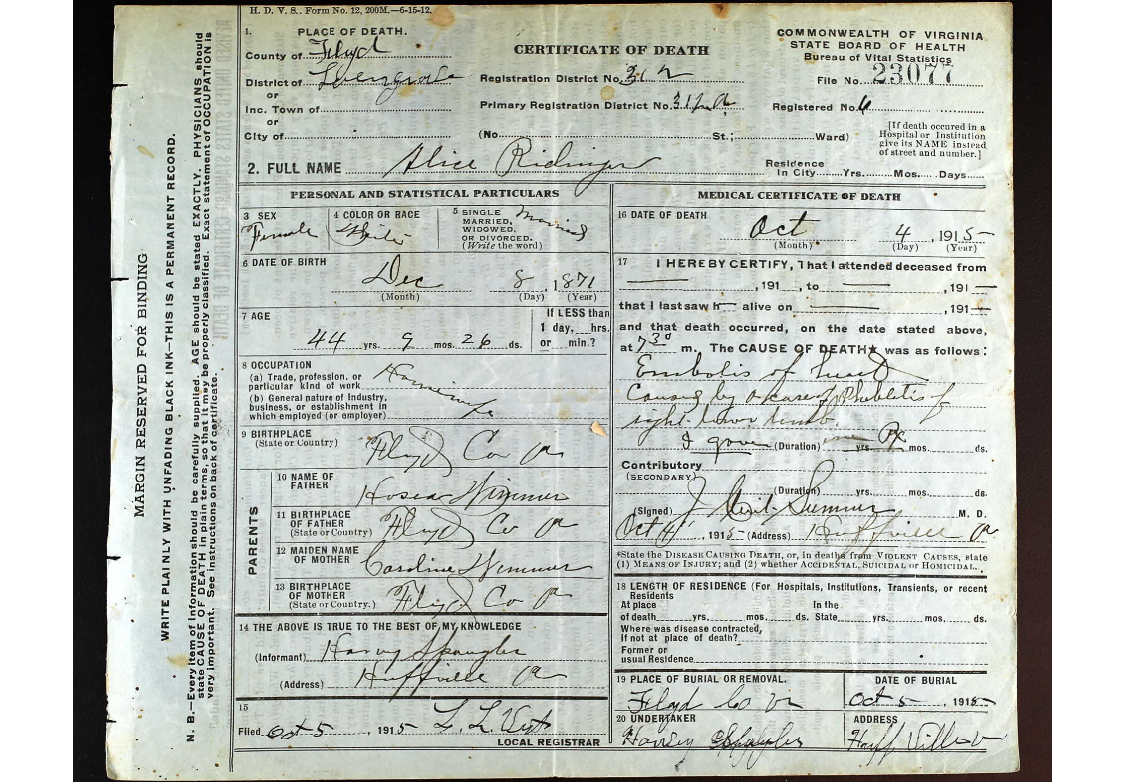 H. D. V. S.. Form No. 12, 200M.—6-15-12.
1. PLACE OF DEATH.
County of Floyd
District of
or
Inc. Town of
or
City of
CERTIFICATE OF DEATH
Registration District No. 31
Primary Registration District No. 31
(No. St.; Ward)
COMMONWEALTH OF VIRGINIA
STATE BOARD OF HEALTH
Bureau of Vital Statistics
File No. 23077
Registered No. 6
[If death occured in a
Hospital or Institution
give its NAME instead
of street and number.]
2. FULL NAME Alice Ridinger
Residence
In City Yrs. Mos. Days
MARGIN RESERVED FOR BINDING
WRITE PLAINLY WITH UNFADING BLACK INK—THIS IS A PERMANENT RECORD.
N. B.—Every item of information should be carefully supplied. AGE should be stated EXACTLY. PHYSICIANS should
state CAUSE OF DEATH in plain terms, so that it may be properly classified. Exact statement of OCCUPATION is
very important. See instructions on back of certificate.
PERSONAL AND STATISTICAL PARTICULARS
3 SEX
Female
4 COLOR OR RACE
White
5 SINGLE
MARRIED,
WIDOWED,
OR DIVORCED.
(Write the word)
Married
6 DATE OF BIRTH
Dec 8, 1871
(Month) (Day) (Year)
7 AGE
44 yrs. 9 mos. 26 ds.
If LESS than
1 day, hrs.
or min.?
8 OCCUPATION
(a) Trade, profession, or
particular kind of work
(b) General nature of Industry,
business, or establishment in
which employed (or employer)
Housewife
9 BIRTHPLACE
(State or Country)
Floyd Co Va
PARENTS
10 NAME OF
FATHER
Hosea Wimmer
11 BIRTHPLACE
OF FATHER
(State or Country)
Floyd Co Va
12 MAIDEN NAME
OF MOTHER
Caroline Wimmer
13 BIRTHPLACE
OF MOTHER
(State or Country.)
Floyd Co Va
14 THE ABOVE IS TRUE TO THE BEST OF MY KNOWLEDGE
(Informant) Harvy Spangler
(Address) Huffville Va
15
Filed Oct 5, 1915 L. L.
LOCAL REGISTRAR
MEDICAL CERTIFICATE OF DEATH
16 DATE OF DEATH
Oct 4, 1915
(Month) (Day) (Year)
17 I HEREBY CERTIFY, That I attended deceased from
, 191 , to , 191
that I last saw h alive on , 191
and that death occurred, on the date stated above,
at 7 30 m. The CAUSE OF DEATH* was as follows:
Embolis of heart
Caused by a case of Phlebitis of
right lower limb.
I gave (Duration) yrs. Rx mos. ds.
Contributory
(SECONDARY)
(Duration) yrs. mos. ds.
(Signed) J M. D.
Oct 4, 1915 (Address) Huffville Va
*State the DISEASE CAUSING DEATH, or, in deaths from VIOLENT CAUSES, state
(1) MEANS OF INJURY; and (2) whether ACCIDENTAL, SUICIDAL or HOMICIDAL.
18 LENGTH OF RESIDENCE (For Hospitals, Institutions, Transients, or recent
Residents
At place In the
of death yrs. mos. ds. State yrs. mos. ds.
Where was disease contracted,
If not at place of death?
Former or
usual Residence
19 PLACE OF BURIAL OR REMOVAL.
Floyd Co Va
DATE OF BURIAL
Oct 5, 1915
20 UNDERTAKER
Harvey Spangler
ADDRESS
Huffville V